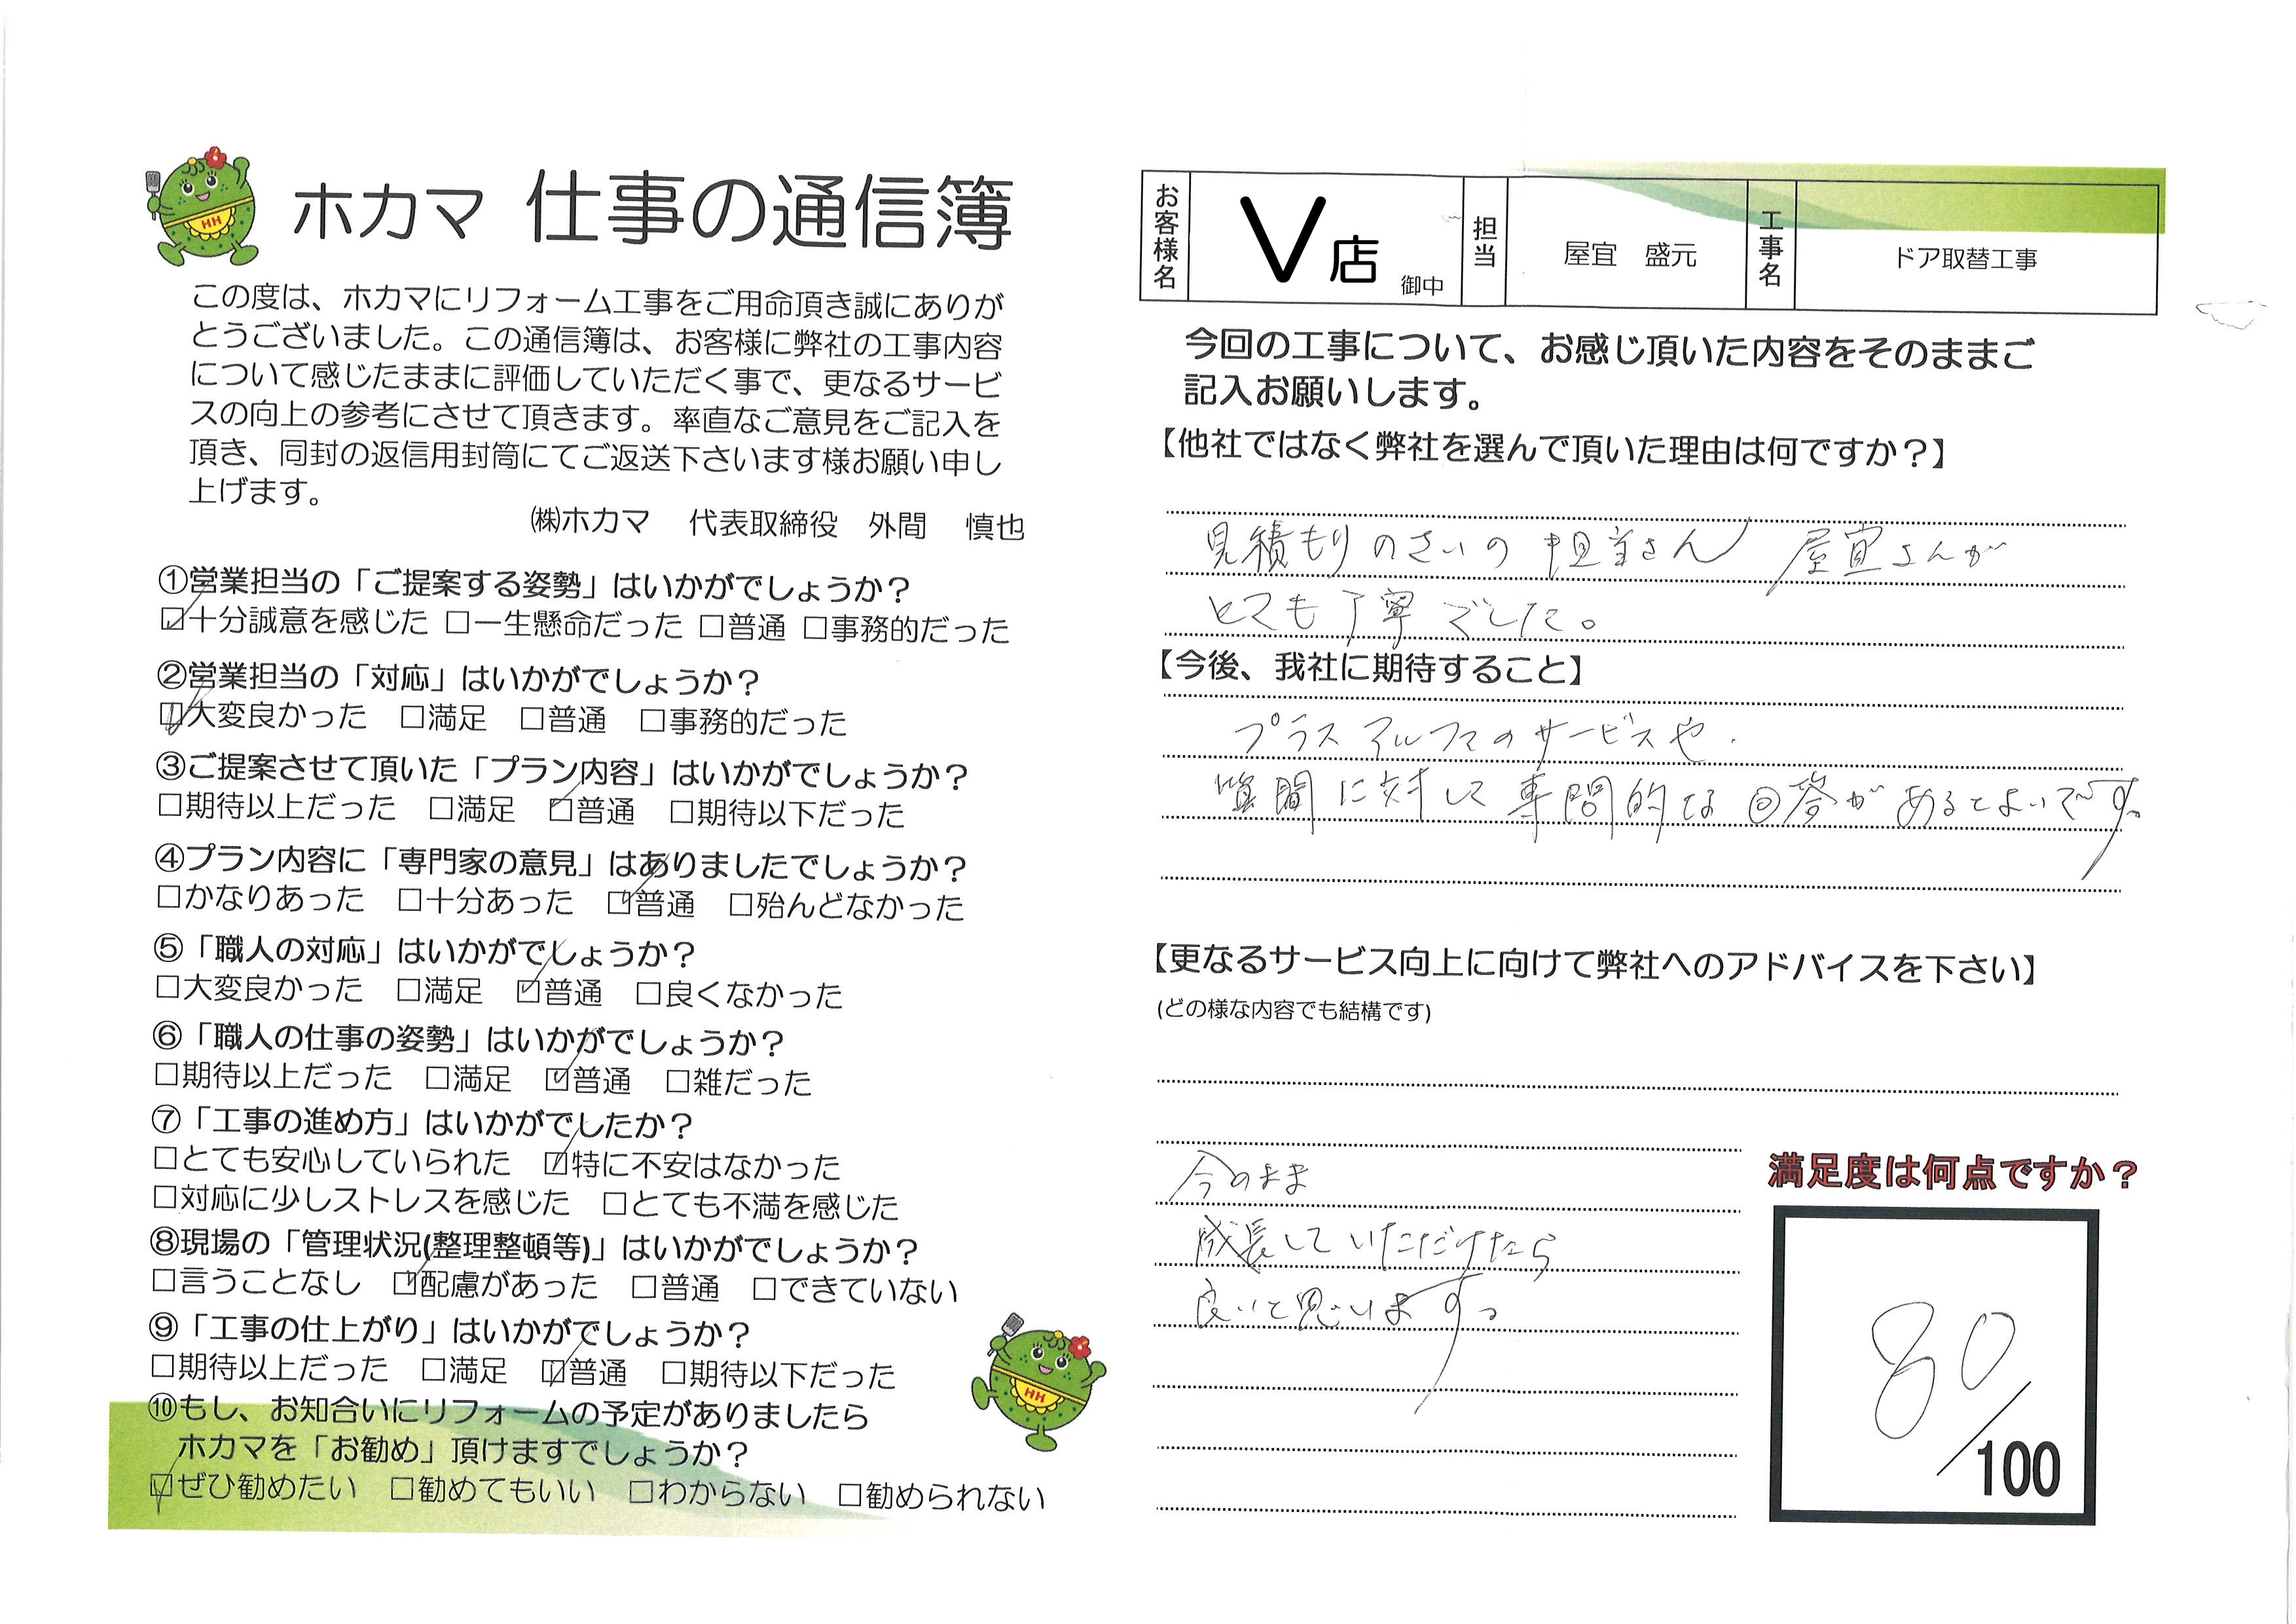 ホカマ 仕事の通信簿
この度は、ホカマにリフォーム工事をご用命頂き誠にありが
とうございました。この通信簿は、お客様に弊社の工事内容
について感じたままに評価していただく事で、更なるサービ
スの向上の参考にさせて頂きます。率直なご意見をご記入を
頂き、同封の返信用封筒にてご返送下さいます様お願い申し
上げます。
㈱ホカマ 代表取締役 外間 慎也
①営業担当の「ご提案する姿勢」はいかがでしょうか？
☑十分誠意を感じた □一生懸命だった □普通 □事務的だった
②営業担当の「対応」はいかがでしょうか？
☑大変良かった □満足 □普通 □事務的だった
③ご提案させて頂いた「プラン内容」はいかがでしょうか？
□期待以上だった □満足 ☑普通 □期待以下だった
④プラン内容に「専門家の意見」はありましたでしょうか？
□かなりあった □十分あった ☑普通 □殆んどなかった
⑤「職人の対応」はいかがでしょうか？
□大変良かった □満足 ☑普通 □良くなかった
⑥「職人の仕事の姿勢」はいかがでしょうか？
□期待以上だった □満足 ☑普通 □雑だった
⑦「工事の進め方」はいかがでしたか？
□とても安心していられた ☑特に不安はなかった
□対応に少しストレスを感じた □とても不満を感じた
⑧現場の「管理状況(整理整頓等)」はいかがでしょうか？
□言うことなし ☑配慮があった □普通 □できていない
⑨「工事の仕上がり」はいかがでしょうか？
□期待以上だった □満足 ☑普通 □期待以下だった
⑩もし、お知合いにリフォームの予定がありましたら
ホカマを「お勧め」頂けますでしょうか？
☑ぜひ勧めたい □勧めてもいい □わからない □勧められない
HH
HH
お客様名 V店 御中 担当 屋宜 盛元 工事名 ドア取替工事
今回の工事について、お感じ頂いた内容をそのままご
記入お願いします。
【他社ではなく弊社を選んで頂いた理由は何ですか？】
見積もりのさいの 担当さん 屋宜さんが
とても丁寧でした。
【今後、我社に期待すること】
プラスアルファのサービスや.
質問に対して専門的な回答があるとよいです。
【更なるサービス向上に向けて弊社へのアドバイスを下さい】
(どの様な内容でも結構です)
今のまま
成長していただけたら
良いと思います。
満足度は何点ですか？
80/100